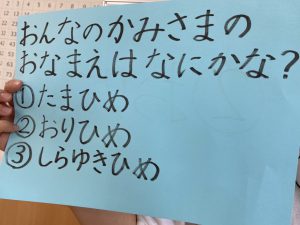 おんなのかみさまの
おなまえはなにかな？
①たまひめ
②おりひめ
③しらゆきひめ